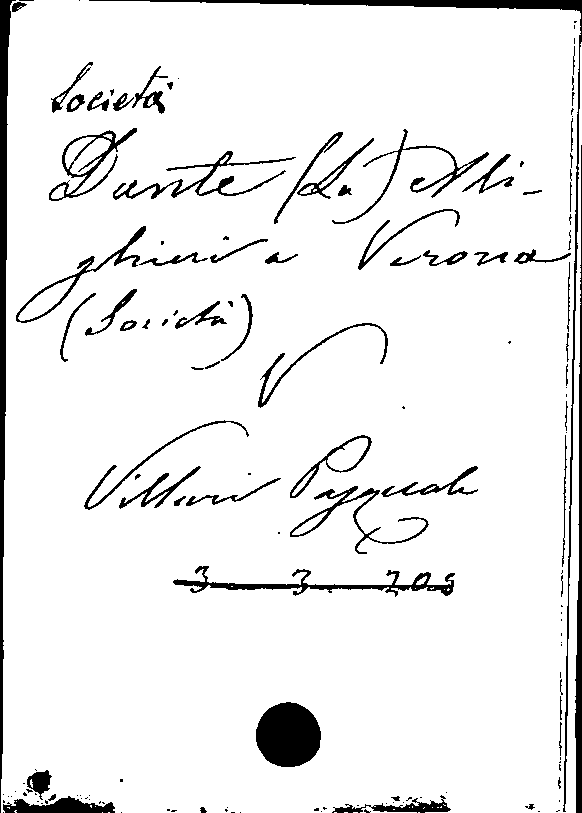 Società
Dante (La) Ali-
ghieri a Verona
(Società)
V
Villari Pasquale
3 3 208